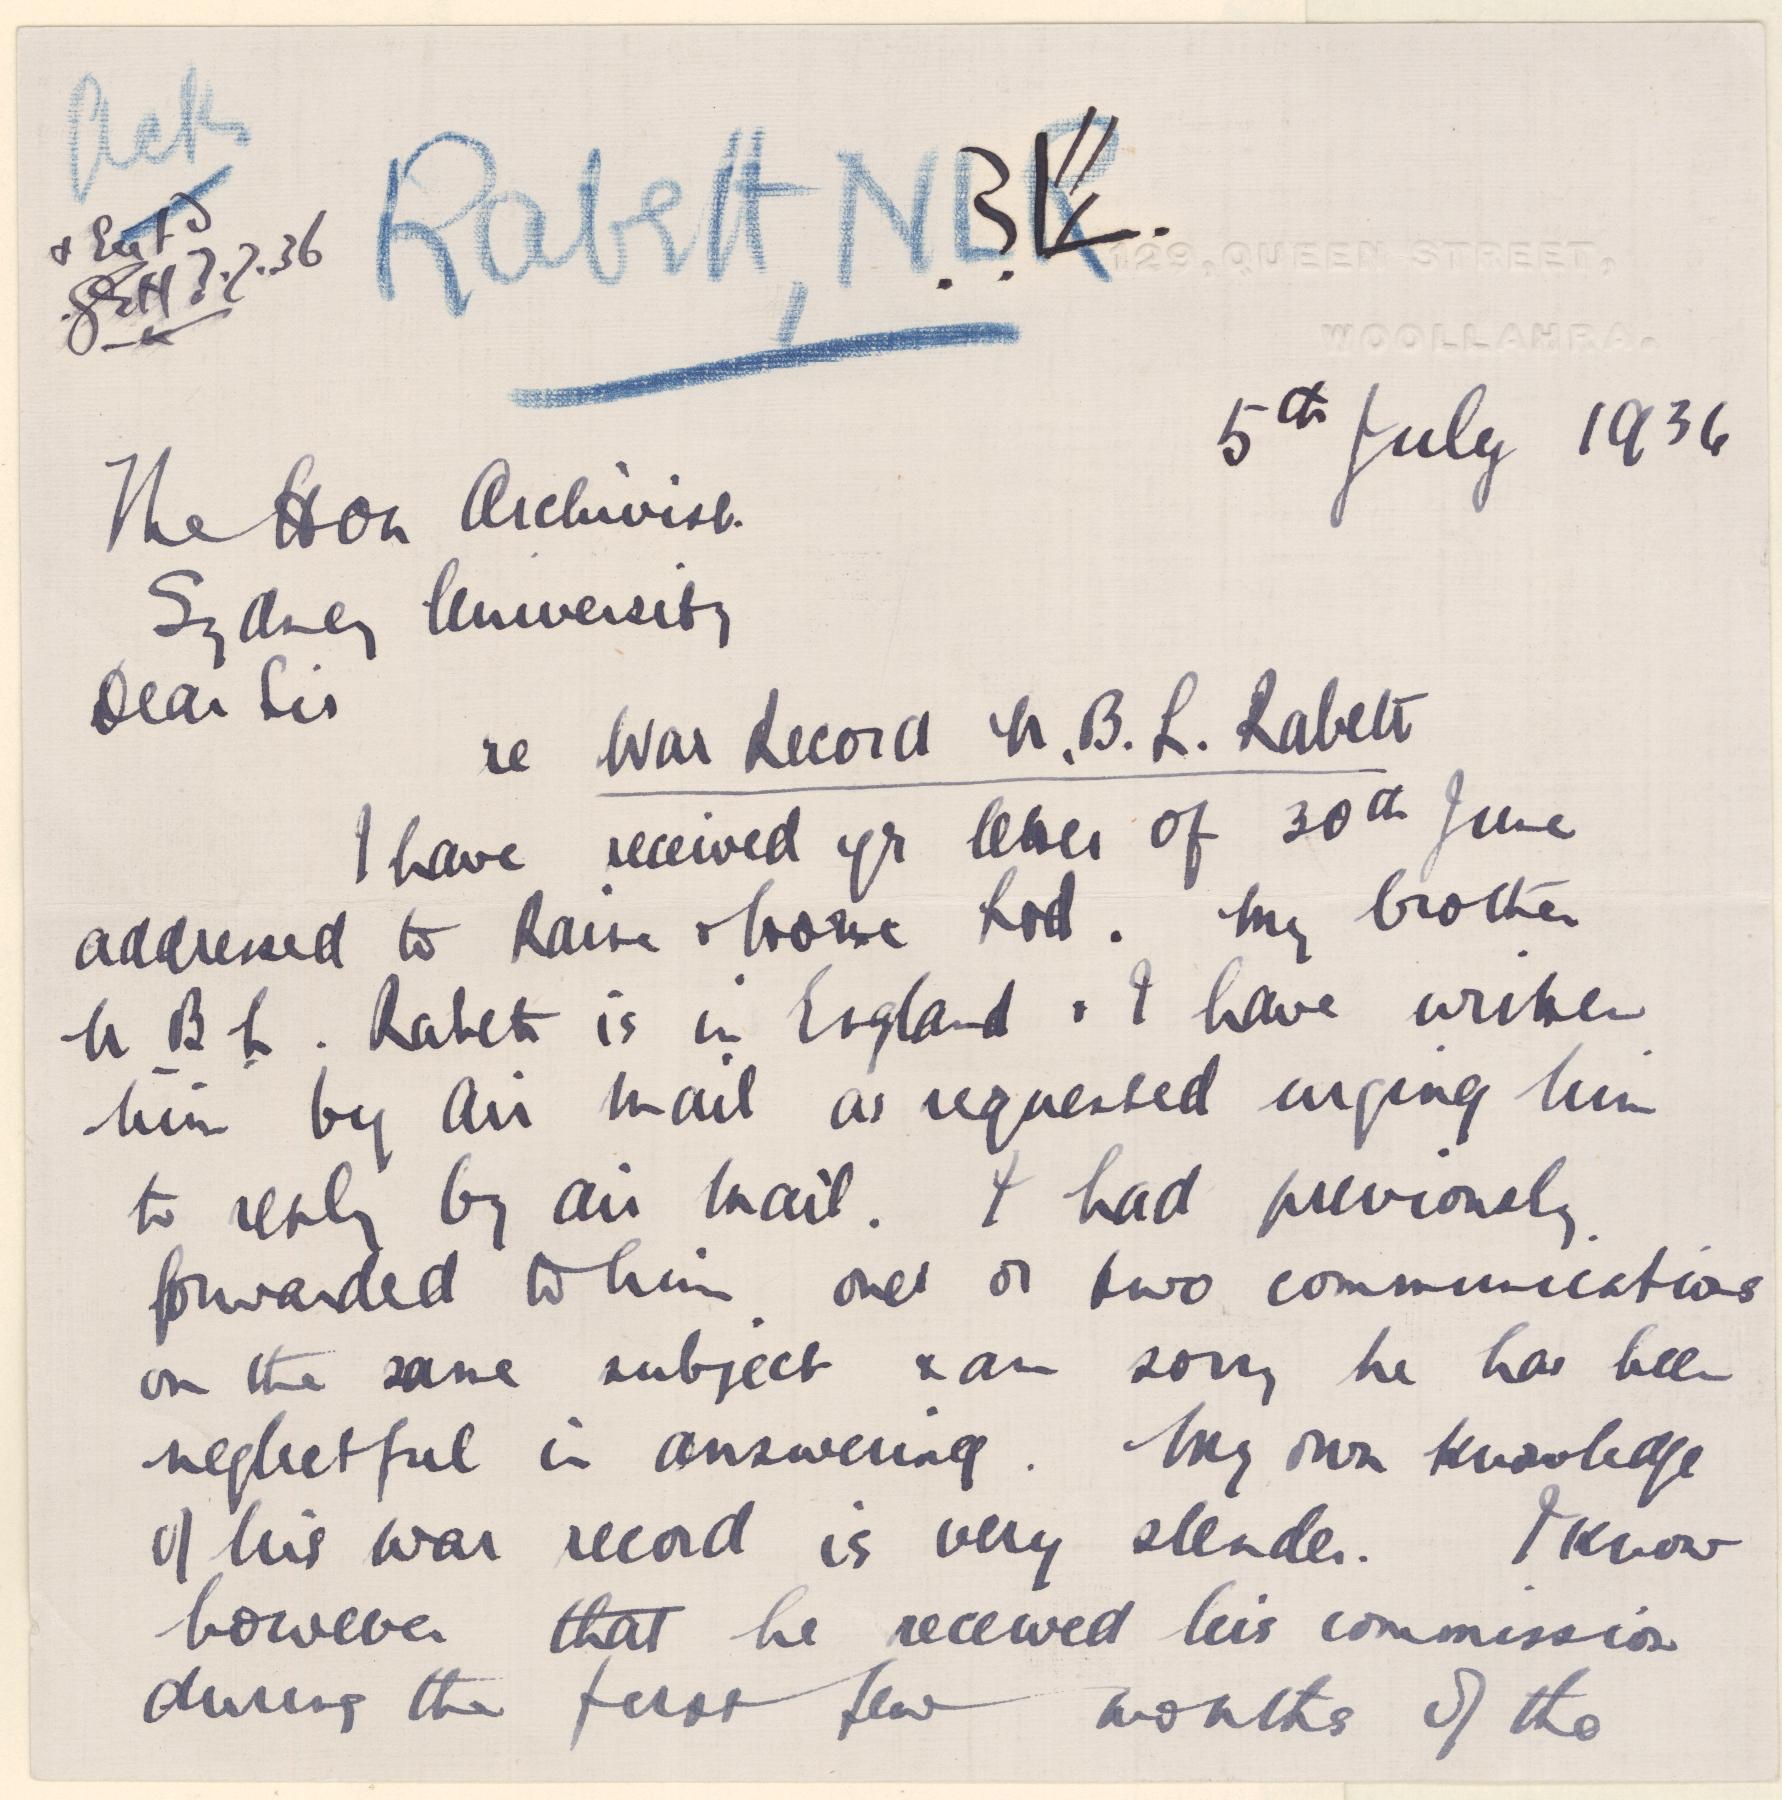 Ack
Rabett, N.B.L.
& Ent'd
7.7.36
129, QUEEN STREET,
WOOLLAHRA.
5th July 1936
The Hon Archivist.
Sydney University
Dear Sir
re War Record N.B.L. Rabett
I have received yr letter of 30th June
addressed to Raine & Horne Ltd. My brother
N B L. Rabett is in England & I have written
him by air mail as requested urging him
to reply by air mail. I had previously
forwarded to him one or two communications
on the same subject & am sorry he has been
neglectful in answering. My own knowledge
of his war record is very slender. I know
however that he received his commission
during the first few months of the